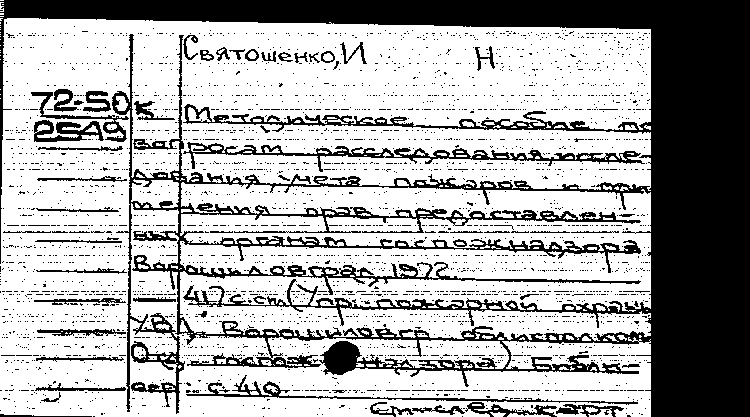 Святошенко, И Н
72-50к
2549
Методическое пособие по
вопросам расследования, иссле-
дования, учета пожаров и при-
менения прав, предоставлен-
ных органам госпожнадзора.
Ворошиловград, 1972.
417 с. ст. (Упр. пожарной охраны
УВД Ворошиловгр. облисполкома
Отд. госпож надзора). Библи-
огр.: с. 410.
См. след. карт.